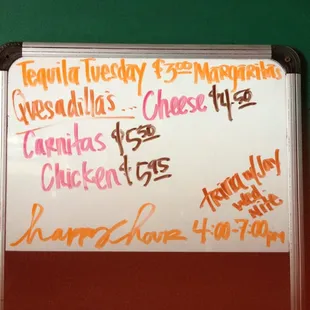 Tequila Tuesday $3.00 Margaritas
Quesadilla's... Cheese $4.50
Carnitas $5.50
Chicken $5.95
Wed
Nite
happy hour 4:00-7:00pm